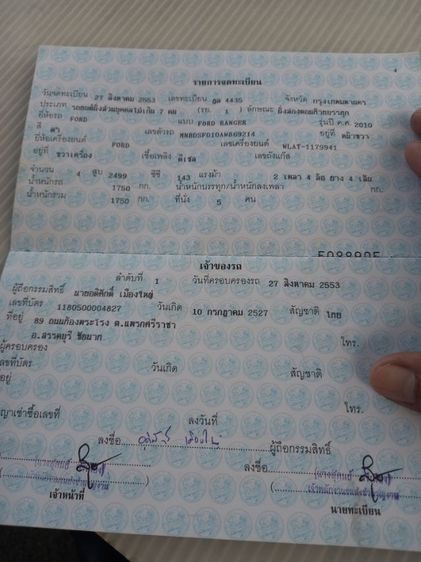 รายการจดทะเบียน
วันจดทะเบียน 27 สิงหาคม 2553 เลขทะเบียน 4435 จังหวัด กรุงเทพมหานคร
ประเภท รถยนต์นั่งส่วนบุคคลไม่เกิน 7 คน (รย. 1) ลักษณะ
ยี่ห้อรถ FORD แบบ FORD RANGER รุ่นปี ค.ศ. 2010
สี ดำ เลขตัวรถ อยู่ที่
ยี่ห้อเครื่องยนต์ FORD เลขเครื่องยนต์ WLAT-1179941
อยู่ที่ ขวาเครื่อง เชื้อเพลิง ดีเซล เลขถังแก๊ส
จำนวน 4 สูบ 2499 ซีซี 143 แรงม้า 2 เพลา 4 ล้อ ยาง 4 เส้น
น้ำหนักรถ 1750 กก. น้ำหนักบรรทุก/น้ำหนักลงเพลา กก.
น้ำหนักรวม 1750 กก. ที่นั่ง 5 คน
เจ้าของรถ
ลำดับที่ 1 วันที่ครอบครองรถ 27 สิงหาคม 2553
ผู้ถือกรรมสิทธิ์ เมืองใหญ่
เลขที่บัตร 1180500004827 วันเกิด 10 กรกฎาคม 2527 สัญชาติ ไทย
ที่อยู่ 89 ถนนท้องพระโรง ต.แพรกศรีราชา
อ.สรรคบุรี ชัยนาท โทร.
ผู้ครอบครอง
เลขที่บัตร วันเกิด สัญชาติ
อยู่ โทร.
ญาเช่าซื้อเลขที่ ลงวันที่
ลงชื่อ ผู้ถือกรรมสิทธิ์
ลงชื่อ
เจ้าหน้าที่ นายทะเบียน